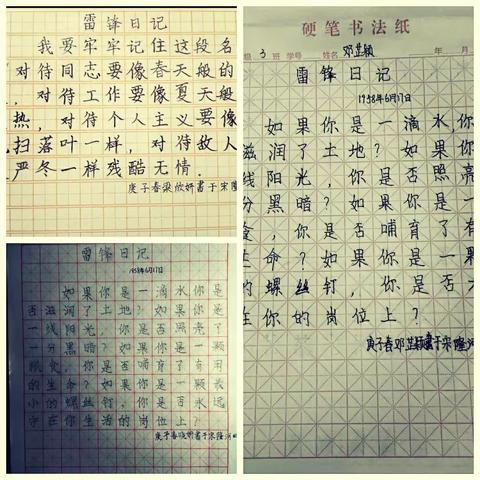 雷锋日记
我要牢牢记住这段名
对待同志要像春天般的
，对待工作要像夏天般
热，对待个人主义要像
扫落叶一样，对待敌人
严冬一样残酷无情．
庚子春梁欣妍书于宋隆
雷锋日记
1958年6月17日
如果你是一滴水你是
否滋润了土地？如果你是
一线阳光，你是否照亮了
一分黑暗？如果你是一颗
粮食，你是否哺育了有用
的生命？如果你是一颗最
小的螺丝钉，你是否永远
守在你生活的岗位上？
庚子春晓妍书于宋隆河
硬笔书法纸
组 3 班 学号 姓名 邓芷颖 年 月
雷锋日记
1958年6月17日
如果你是一滴水，你
滋润了土地？如果你
线阳光，你是否照亮
分黑暗？如果你是一
，你是否哺育了有
生命？如果你是一
的螺丝钉，你是否
在你的岗位上？
庚子春邓芷颖书于宋隆河